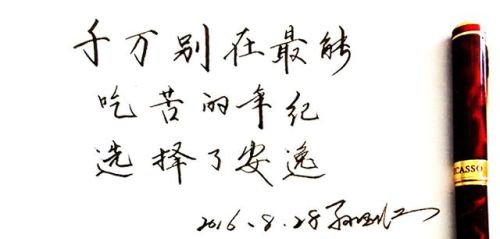 千万别在最能
吃苦的年纪
选择了安逸
2016.8.28
CASSO